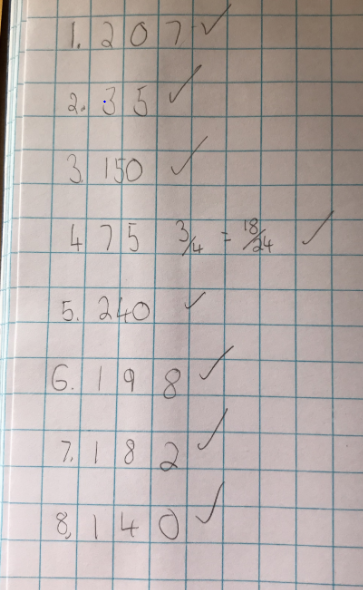 1. 207 ✓
2. 35 ✓
3 150 ✓
4 75 3/4 = 18/24 ✓
5. 240 ✓
6. 198 ✓
7. 182 ✓
8, 140 ✓